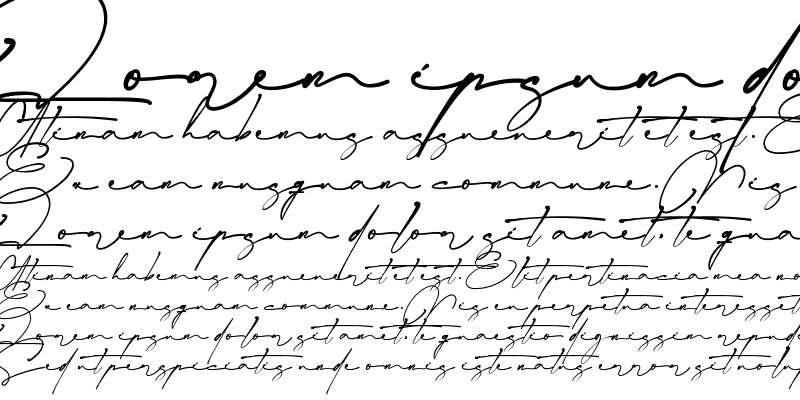 Lorem ipsum do
Utinam habemus assueverit et est. E
Ex eam nusquam commune. Vis
Lorem ipsum dolor sit amet, te qua
Utinam habemus assueverit et est. Elit pertinacia mea no
Ex eam nusquam commune. Vis eu perpetua interesset
Lorem ipsum dolor sit amet, te quaestio dignissim repud
Sed ut perspiciatis unde omnis iste natus error sit volup